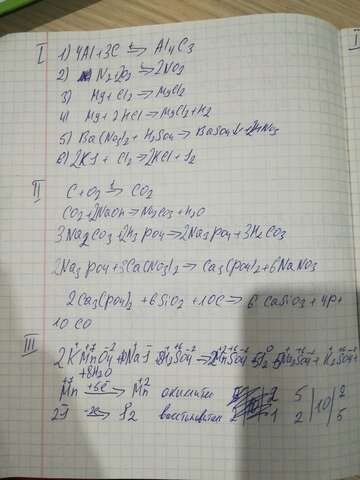 I 1) 4Al+3C → Al4C3
2) N2+2O2 → 2NO2
3) Mg+Cl2 → MgCl2
4) Mg+2HCl → MgCl2+H2
5) Ba(NO3)2 + H2SO4 → BaSO4↓+2HNO3
6) 2KI + Cl2 → 2KCl+I2
II C+O2 → CO2
CO2+2NaOH → Na2CO3+H2O
3Na2CO3+2H3PO4 → 2Na3PO4+3H2CO3
2Na3PO4+3Ca(NO3)2 → Ca3(PO4)2+6NaNO3
2Ca3(PO4)2 +6SiO2 +10C → 6CaSiO3+4P+
10CO
III 2KMnO4 + NaI + H2SO4 → 2MnSO4+I2+Na2SO4+K2SO4+
+8H2O
Mn +5e → Mn окислитель 2 5 10 2
2I -2e → I2 восстановитель 1 2 5